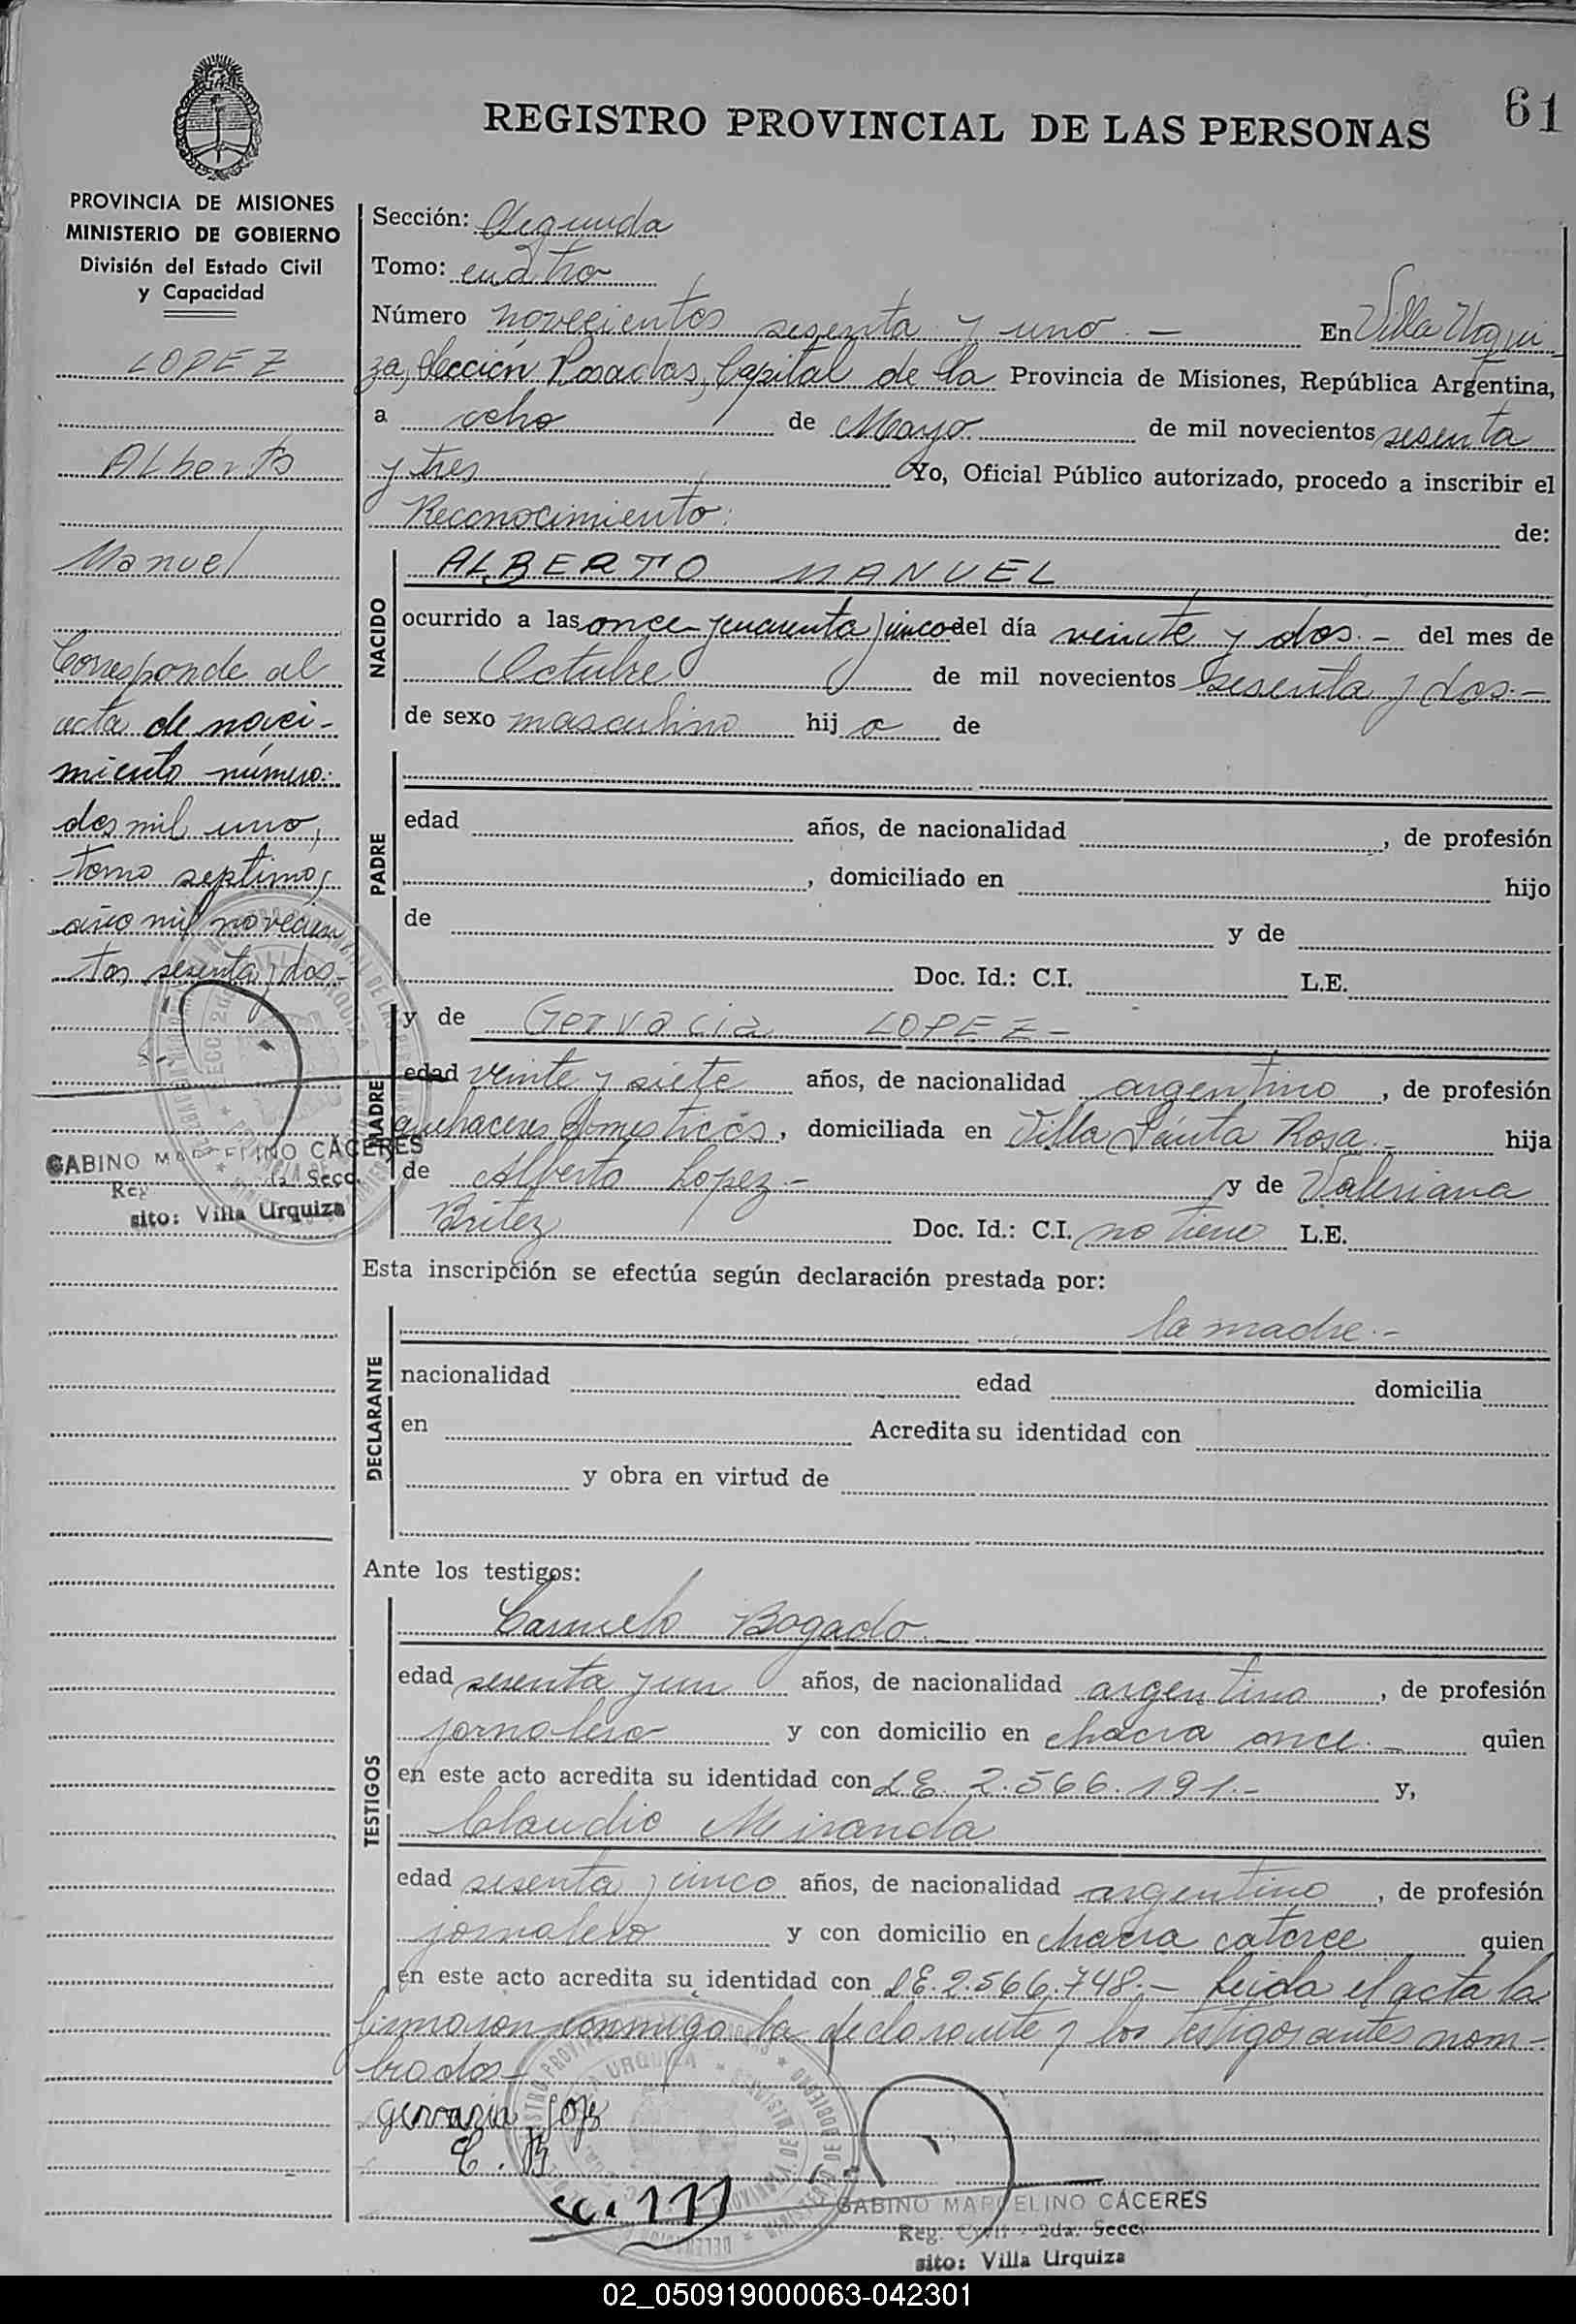 61
REGISTRO PROVINCIAL DE LAS PERSONAS
PROVINCIA DE MISIONES
MINISTERIO DE GOBIERNO
División del Estado Civil
y Capacidad
LOPEZ
Alberto
Manuel
Corresponde al
acta de naci-
miento número:
dos mil uno,
tomo septimo,
año mil novecien
tos sesenta y dos-
GABINO MARCELINO CACERES
Reg 2da. Secc.
sito: Villa Urquiza
Sección: Segunda
Tomo: cuatro
Número novecientos sesenta y uno.- En Villa Urqui
za, Sección Posadas, Capital de la Provincia de Misiones, República Argentina,
a ocho de Mayo de mil novecientos sesenta
y tres Yo, Oficial Público autorizado, procedo a inscribir el
Reconocimiento: de:
NACIDO
ALBERTO MANUEL
ocurrido a las once y cuarenta y cinco del día veinte y dos.- del mes de
Octubre de mil novecientos sesenta y dos.-
de sexo masculino hij o de
PADRE
edad años, de nacionalidad , de profesión
, domiciliado en hijo
de y de
Doc. Id.: C.I. L.E.
MADRE
y de Gervacia LOPEZ-
edad veinte y siete años, de nacionalidad argentino, de profesión
quehaceres domesticos, domiciliada en Villa Santa Rosa.- hija
de Alberto Lopez.- y de Valeriana
Britez Doc. Id.: C.I. no tiene L.E.
Esta inscripción se efectúa según declaración prestada por:
DECLARANTE
la madre.-
nacionalidad edad domicilia
en Acredita su identidad con
y obra en virtud de
Ante los testigos:
TESTIGOS
Carmelo Bogado.-
edad sesenta y un años, de nacionalidad argentino, de profesión
jornalero y con domicilio en chacra once.- quien
en este acto acredita su identidad con LE. 2.566.191.- y,
Claudio Miranda
edad sesenta y cinco años, de nacionalidad argentino, de profesión
jornalero y con domicilio en chacra catorce quien
en este acto acredita su identidad con LE.2.566.748.- Leida el acta la
firmaron conmigo la declarante y los testigos antes nom-
brados-
C. B
GABINO MARCELINO CACERES
Reg. Civil - 2da. Secc.
sito: Villa Urquiza
02_050919000063-042301